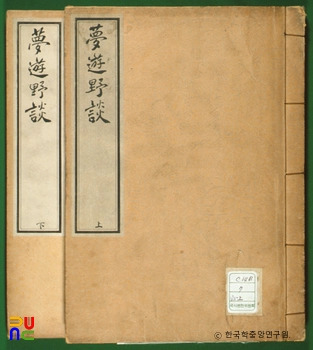 夢遊野談
上
夢遊野談
下
ⓒ 한국학중앙연구원